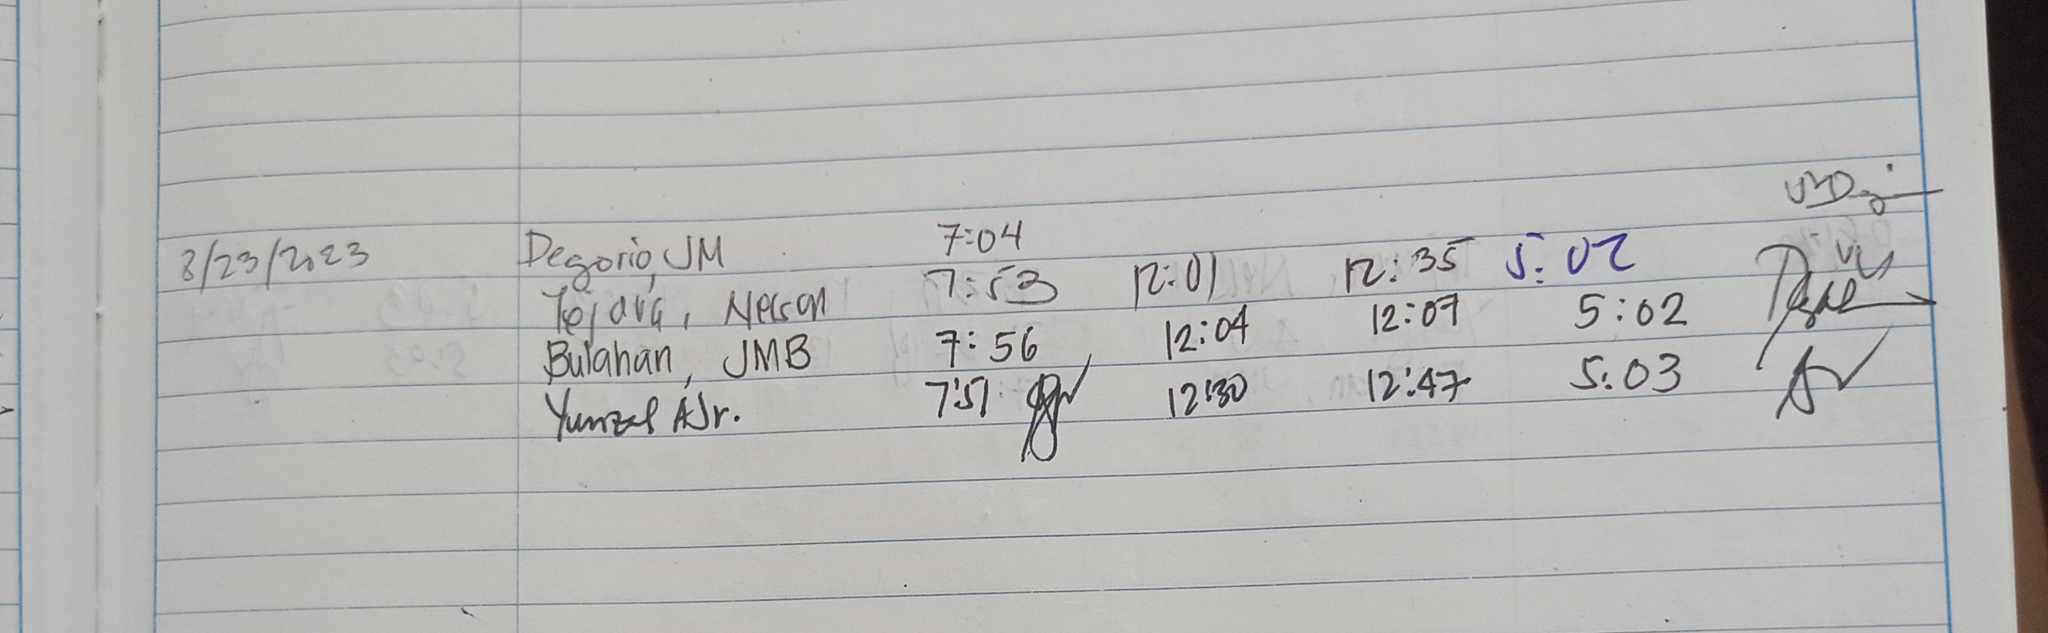 8/23/2023 Degorio, JM 7:04
Tejava, Nelson 7:53 12:01 12:35 5:02
Bulahan, JMB 7:56 12:04 12:07 5:02
Yunzal AJr. 7:51 12:30 12:47 5:03